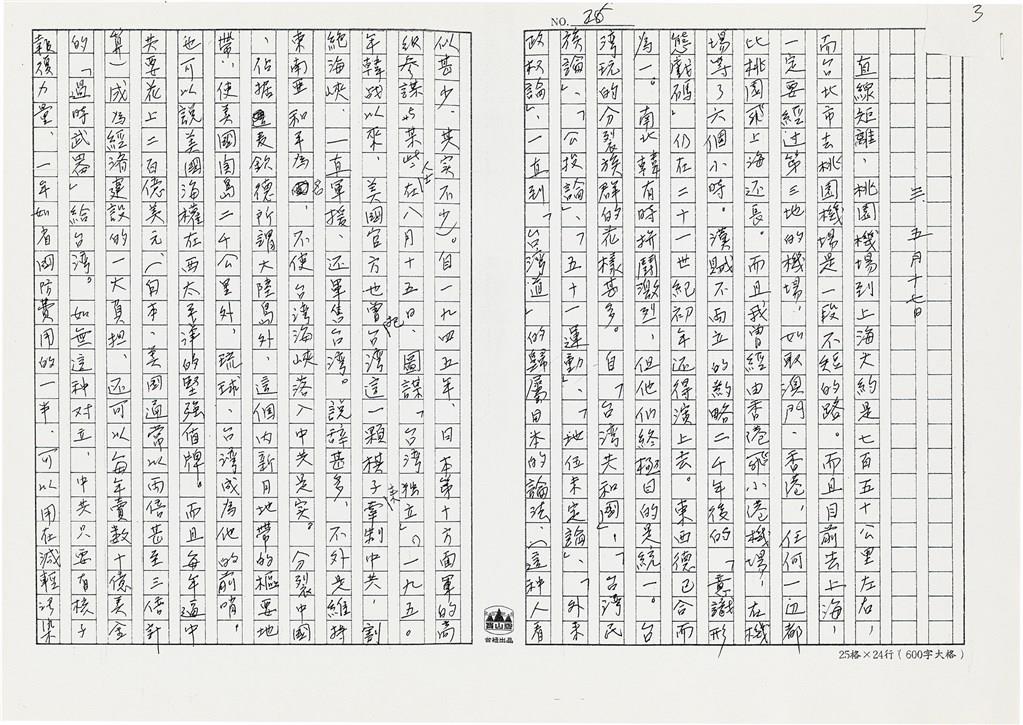 3
NO. 25
三、五月十七日
直線短離，桃園機場到上海大約是七百五十公里左右，
而台北市去桃園機場是一段不短的路。而且目前去上海，
一定要經过第三地的機場，如取澳門、香港，任何一边都
比桃園飛上海还長。而且我曾經由香港飛小港機場，在機
場等了六個小時。漢賊不兩立的約略二千年後的「意識形
態戲碼」仍在二十一世紀初年还得演上去。東西德已合而
為一。南北韓有時拼鬪激烈，但他们終極目的是統一。台
湾玩的分裂族群的花樣甚多。自「台湾共和國」、「台湾民
族論」、「公投論」、「五十一運動」、「地位未定論」、「外來
政权論」，一直到「台湾道」的歸屬日本的論法，（这种人看
似甚少，其实不少）。自一九四五年，日本第十方面軍的高
級參謀与某些人士在八月十五日，圖謀「台湾独立」。一九五〇
年韓战以來，美國官方也曾把台湾這一顆棋子牽制中共，割
絕海峽，一直軍援、还軍售台湾。說辞甚多，不外是維持
東南亚和平為名，不使台湾海峽落入中共是实。分裂中國
、佔据麦欽德所謂大陸島外，這個内新月地帶的樞要地
帶，使美國関島二千公里外，琉球、台湾成為他的前哨。
也可以說美國海權在西太平洋的堅強值牌。而且每年逼中
共要花上二百億美元，（日本、美國通常以兩倍甚至三倍計
算）成為經濟建設的一大負担，还可以每年賣數十億美金
的「過時武器」給台湾。如無這种对立，中共只要有核子
報復力量，一年如省國防費用的一半，可以用在減輕污染
高山牌
省棧出品
25格×24行（600字大格）